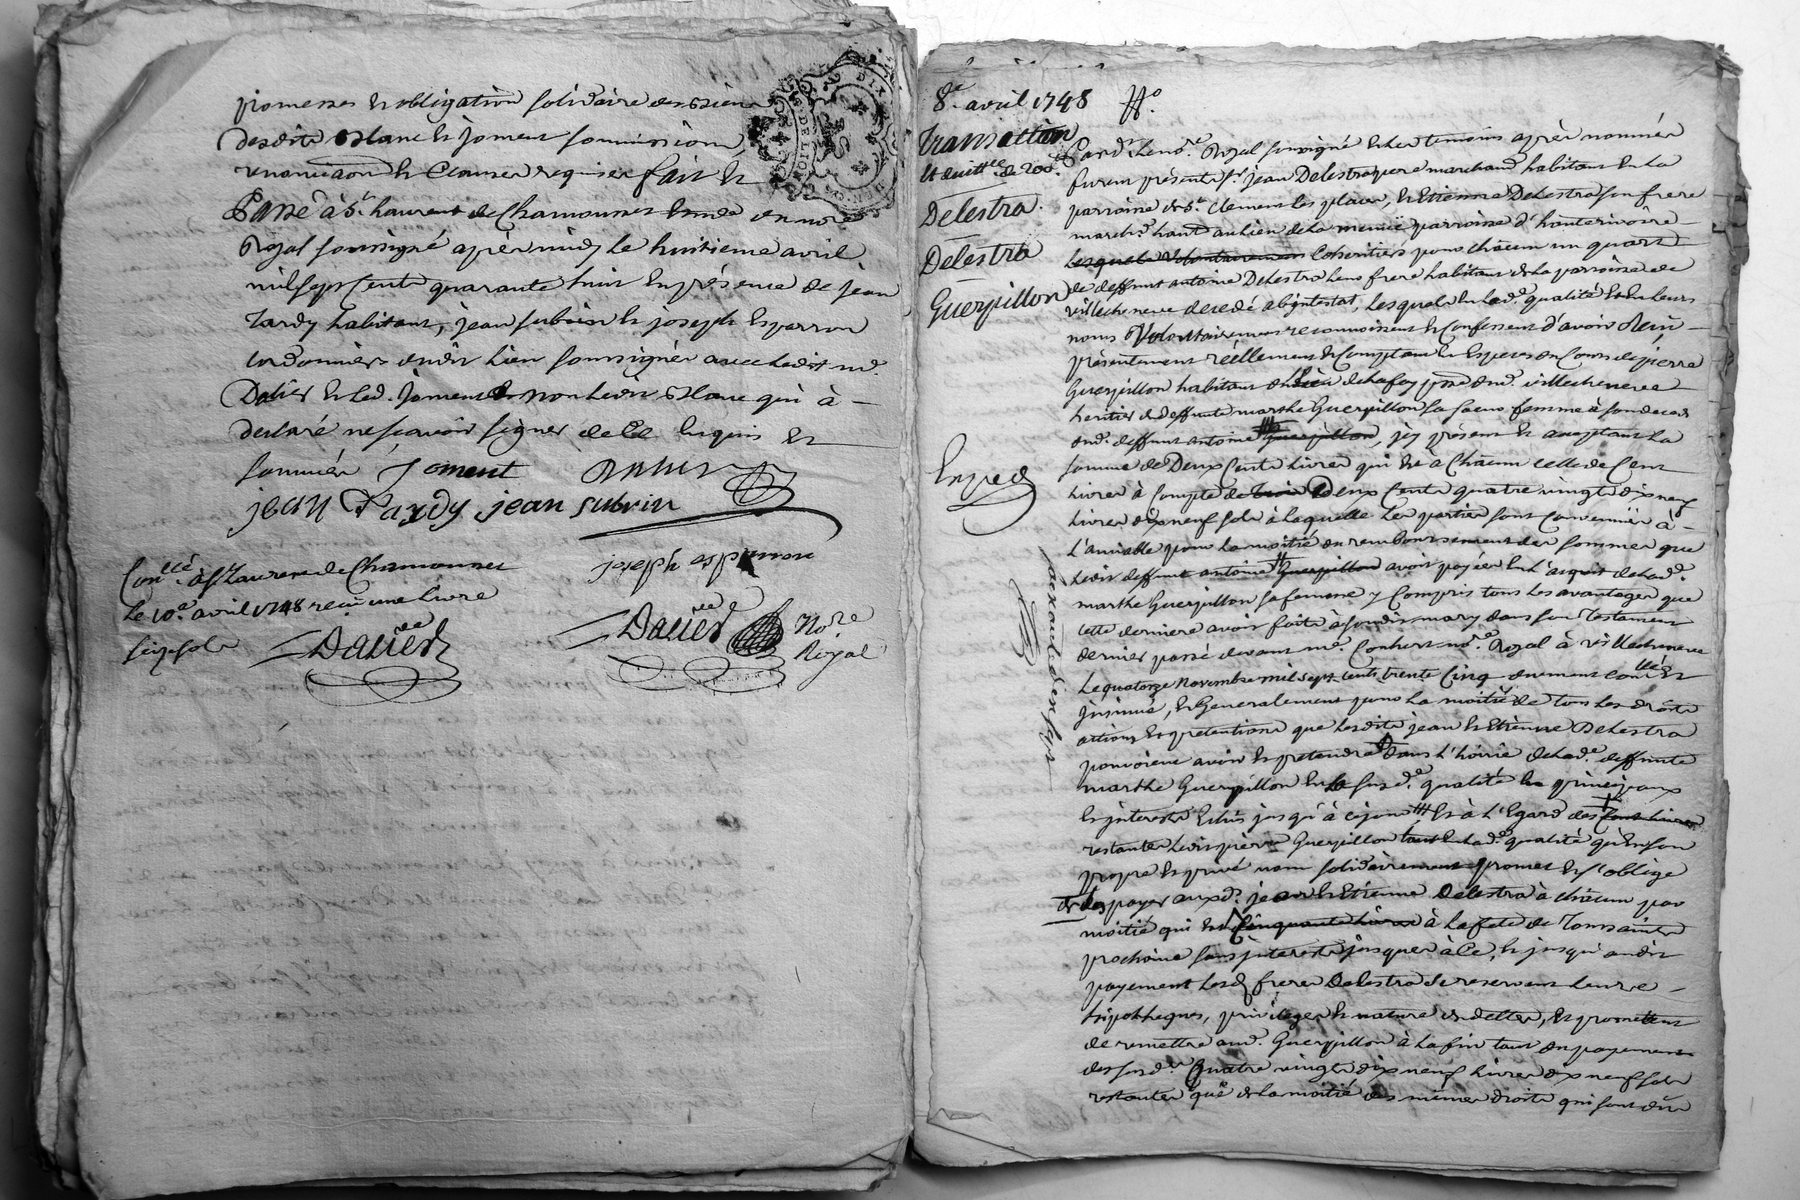 promesses et obligation solidaire des biens
desdits Blanc et Joment soumissions
renonciaon et Clauses requises fait et
Passé à St. Laurent de Chamousset Etude du nore
Royal soussigné après midy le huitieme avril
mil sept Cents quarante huit En présence de jean
Tardy habitant, jean subrin et joseph Esparron
cordonniers dudit Lieu soussignés avec Ledit md.
Dalier et Led. Joment et non Ledit Blanc qui à
declaré ne scavoir signer de Ce Enquis et
sommés Joment
jean Tardy jean subrin
joseph esparron
Conllé. à St Laurent de Chamousset
Le 10e. avril 1748 reçu une Livre
seize sols
Nore
Royal
8e. avril 1748
Transaction
Et quittce. de 200#
Delestra.
Delestra
Guerpillon
Exped
Pardt. Le nore. Royal soussigné et Les temoins après nommés
furent présents Sr. jean Delestra pere marchand habitant En La
parroisse de St. Clement Les places, et Etienne Delestra son frere
marchd. habt. au Lieu de La menüe parroisse d'hauterivoire
Lesquels volontairement Coheritiers pour chacun un quart
de deffunt antoine Delestra Leur frere habitant de La parroisse de
villecheneve decedé abjntestat, Lesquels En Lad. qualité et En Leurs
noms Volontairement reconnoissent et Confessent d'avoir Reçu
présentement réellement et Comptant En Especes du Cours de pierre
Guerpillon habitant du Lieu de Lafay psse dud. villecheneve
heritier de deffunte marthe Guerpillon sa soeur femme à son deced
dud. deffunt antoine Guerpillon, jcy présent et acceptant La
somme de Deux Cents Livres qui Est à Chacun celle de Cent
Livres à Compte de trois Deux Cents quatre vingts dix neuf
Livres dix neuf sols à Laquelle Les parties sont Convenües à
L'amiable pour La moitié du remboursement des sommes que
Ledit deffunt antoine Guerpillon avoit payées En L'acquit de Lad.
marthe Guerpillon sa femme y Compris tous Les avantages que
cette derniere avoit faits à sondit mary dans son Testament
dernier passé devant me. nore. Royal à villecheneve
Le quatorze Novembre mil sept cents trente Cinq duement conllé et
jnsinué, et Generalement pour La moitié de tous Les droits
actions et pretentions que Lesdits jean et Etienne Delestra
pouvoient avoir et pretendre dans L'hoirie de Lad. deffunte
marthe Guerpillon En La susd. qualité En principaux
Et jnterests Echûs jusqu'à cejour et à L'Egard des Cent Livres
restantes Ledit pierre Guerpillon tant En Lad. qualité qu'En son
propre et privé nom solidairement promet et s'oblige
de Les payer auxd. jean et Etienne Delestra à chacun par
moitié qui Est Cinquante Livres à La fete de Toussaints
prochaine sans jnterests jusques à Ce, et jusqu'audit
payement Lesd. freres Delestra se reservent Leurs
hipotheques, privileges et nature de dettes, et promettent
de remettre aud. Guerpillon à La fin tant du payement
des susd. Quatre vingts dix neuf Livres dix neuf sols
restantes que de La moitié des mêmes droits qui sont dûs